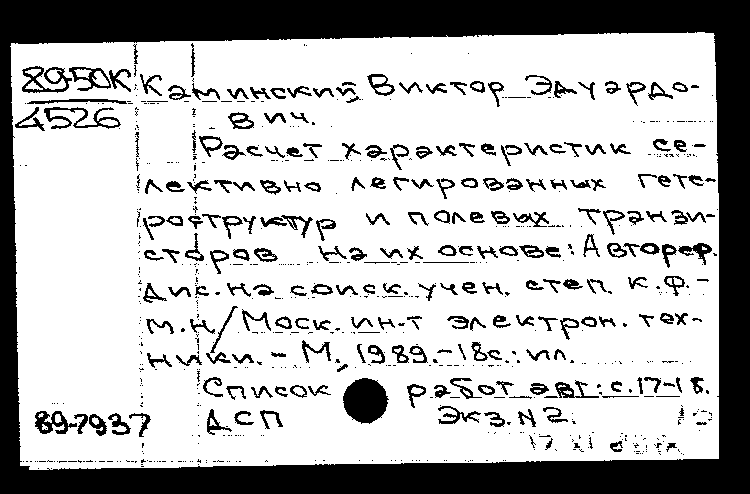 89-50К Каминский Виктор Эдуардо-
4526 вич.
Расчет характеристик се-
лективно легированных гете-
роструктур и полевых транзи-
сторов на их основе: Автореф.
дис. на соиск. учен. степ. к.ф.-
м.н/ Моск. ин-т электрон. тех-
ники. - М., 1989.-18с.: ил.
Список работ авт: с.17-18.
89-7937 ДСП Экз. N 2.
17 XI